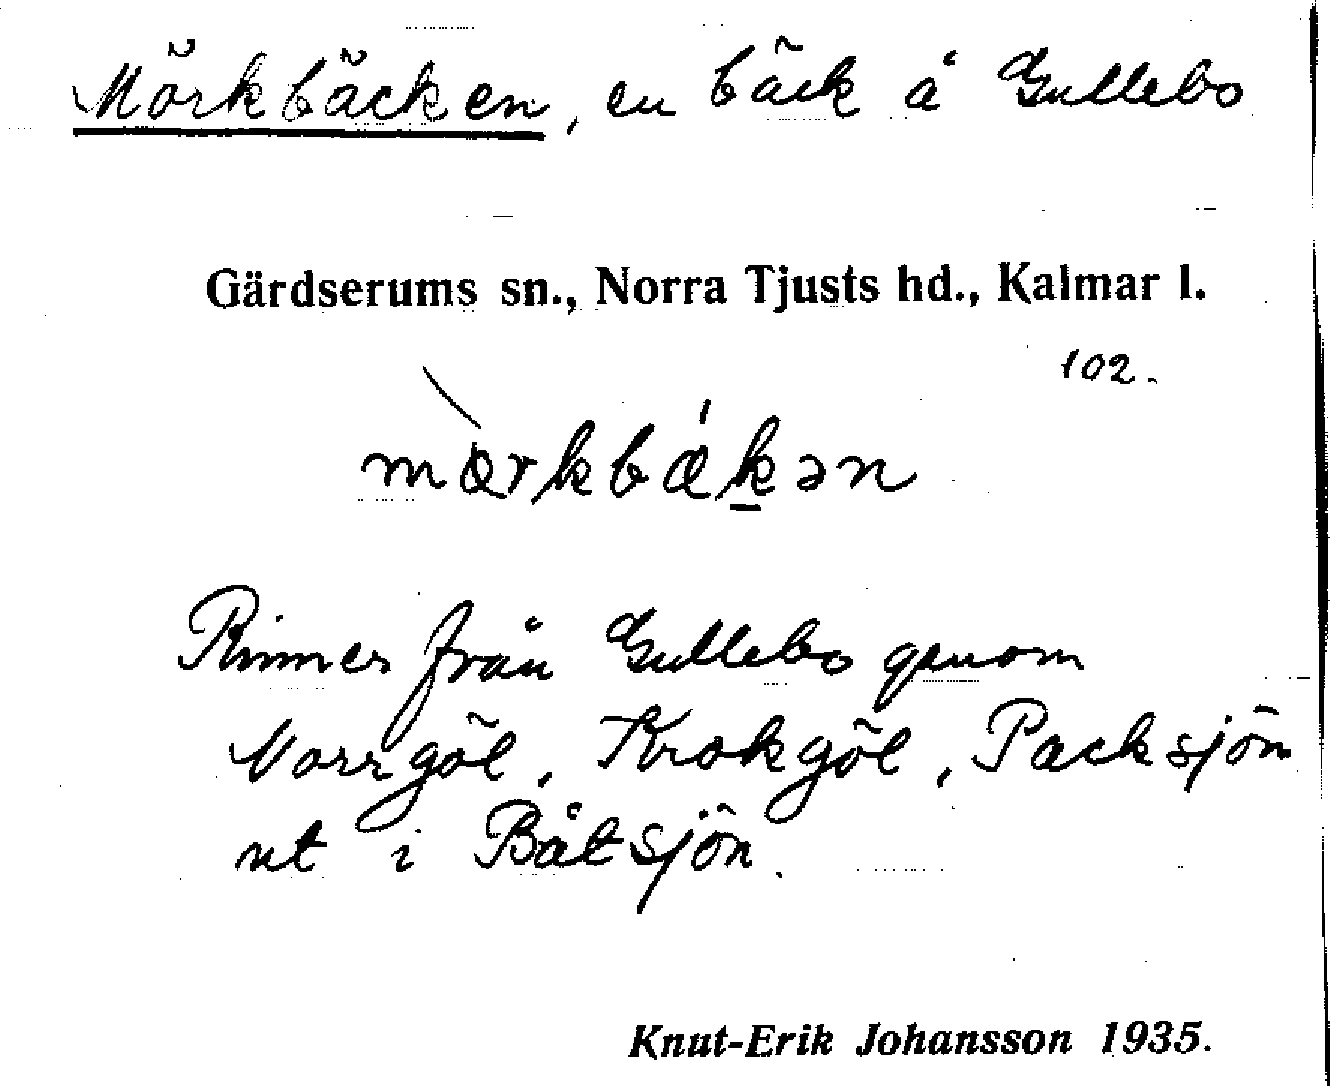 Mörkbäcken, en bäck å Gullebo
Gärdserums sn., Norra Tjusts hd., Kalmar l.
102.
mœrkbǽk̲ən
Rinner från Gullebo genom
Norrgöl, Krokgöl, Packsjön
ut i Båtsjön.
Knut-Erik Johansson 1935.